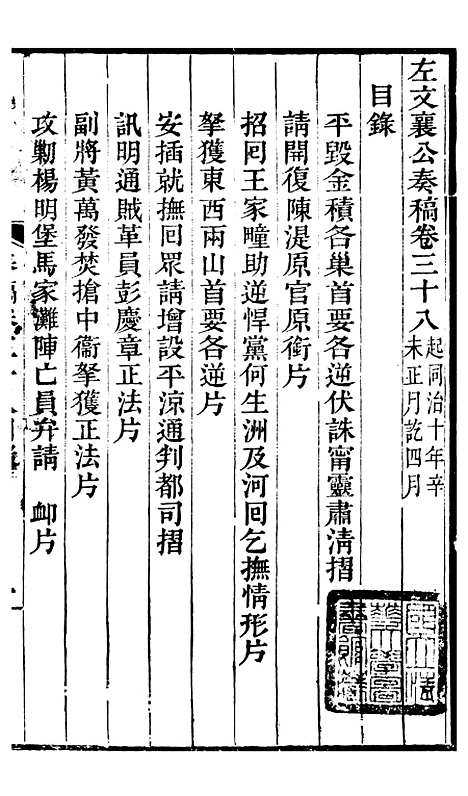 左文襄公奏稿卷三十八起同治十年辛未正月訖四月
目錄
平毀金積各巢首要各逆伏誅甯靈肅清摺
請開復陳湜原官原銜片
招回王家疃助逆悍黨何生洲及河回乞撫情形片
拏獲東西兩山首要各逆片
安插就撫回眾請增設平涼通判都司摺
訊明通賊革員彭慶章正法片
副將黃萬發焚搶中衞拏獲正法片
攻勦楊明堡馬家灘陣亡員弁請 卹片